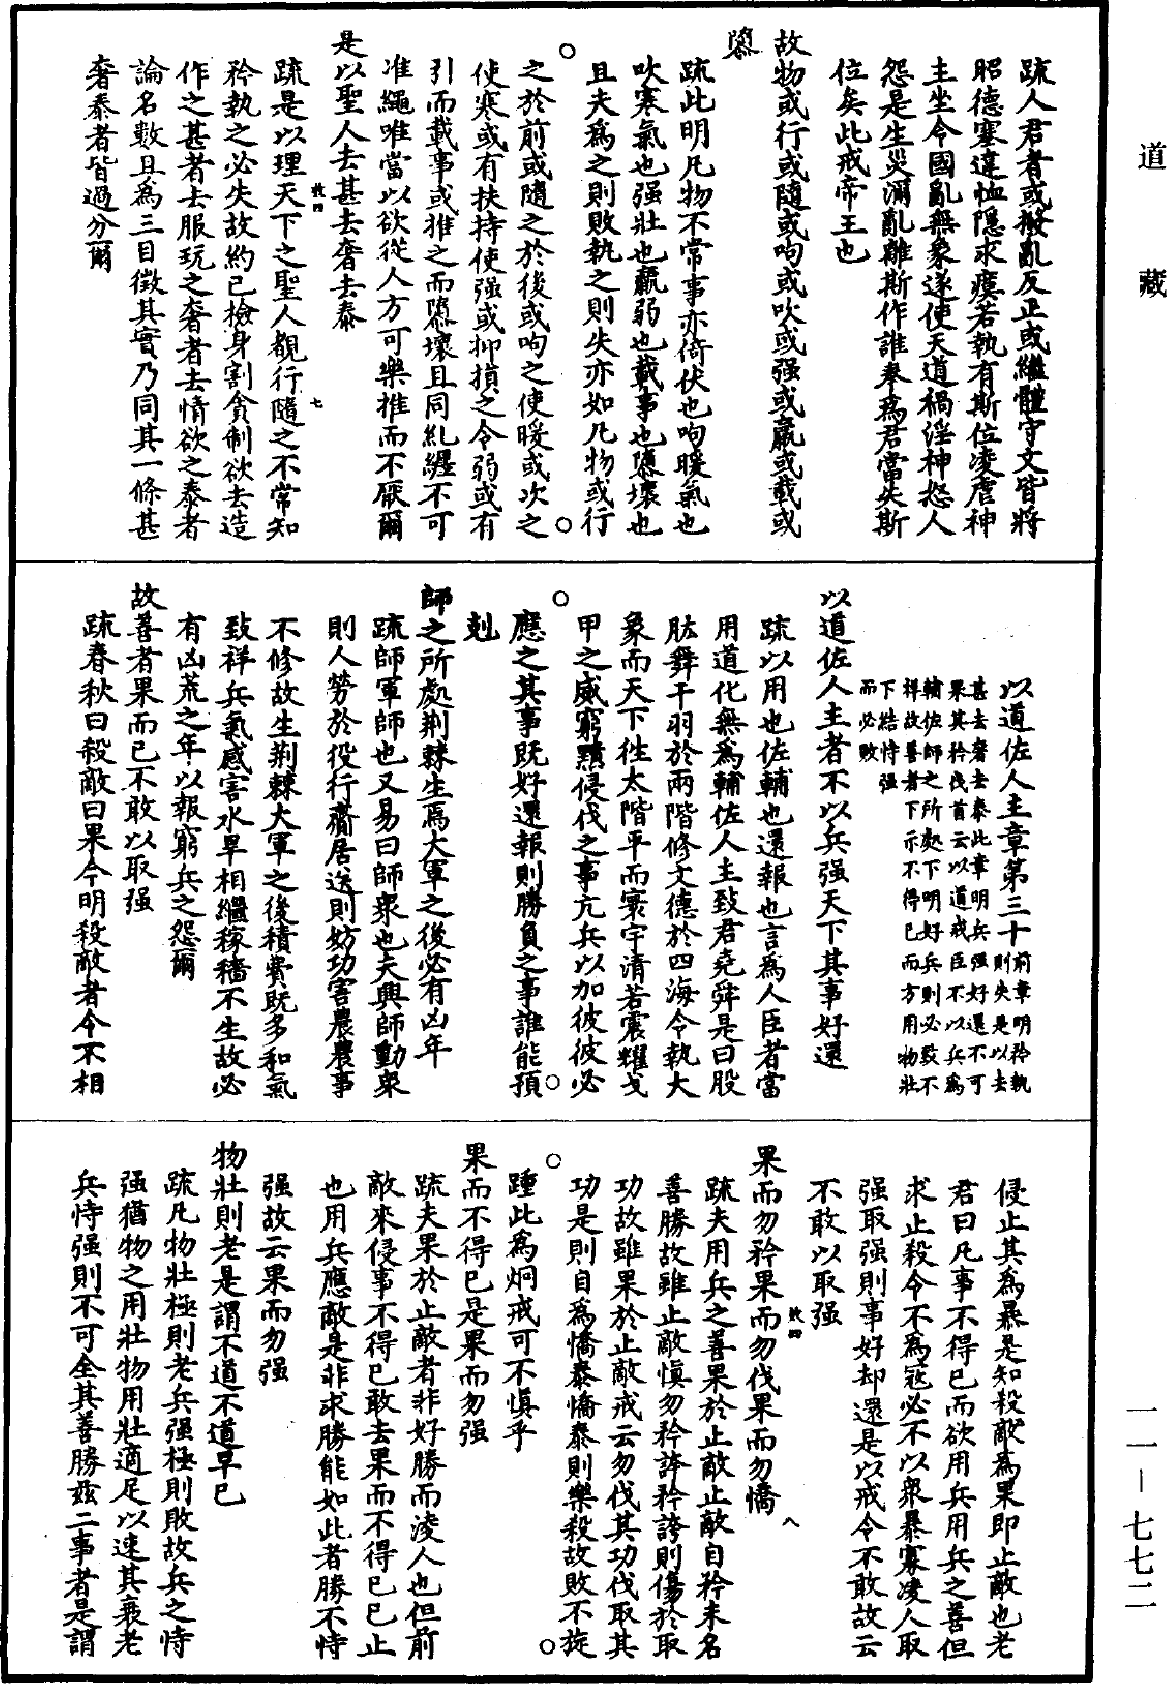 道藏
疏人君者或撥亂反正或繼體守文皆將
昭德塞違恤隱求瘼若執有斯位凌虐神
主坐令國亂無象遂使天道禍淫神怒人
怨是生災瀰亂離斯作誰奉爲君當失斯
位矣此戒帝王也
故物或行或隨或呴或吹或强或羸或載或
隳
疏此明凡物不常事亦倚伏也呴暖氣也
吹寒氣也强壯也羸弱也載事也隳壞也
且夫爲之則敗執之則失亦如凡物或行
之於前或隨之於後或呴之使暖或吹之
使寒或有扶持使强或抑損之令弱或有
引而載事或推之而隳壞且同糺纆不可
准繩唯當以欲從人方可樂推而不厭爾
是以聖人去甚去奢去泰
疏是以理天下之聖人觀行隨之不常知
矜執之必失故約己檢身割貪制欲去造
作之甚者去服玩之奢者去情欲之泰者
論名數且爲三目徵其實乃同其一條甚
奢泰者皆過分爾
效四
七
以道佐人主章第三十
前章明矜執
則失是以去
甚去奢去泰此章明兵强好還不可
果其矜伐首云以道戒臣不以兵爲
輔佐師之所處下明好兵則必致不
祥故善者下示不得已而方用物壯
下結恃强
而必敗
以道佐人主者不以兵强天下其事好還
疏以用也佐輔也還報也言爲人臣者當
用道化無爲輔佐人主致君堯舜是曰股
肱舞干羽於兩階修文德於四海令執大
象而天下往太階平而寰宇清若震耀戈
甲之威窮黷侵伐之事亢兵以加彼彼必
應之其事既好還報則勝負之事誰能預
剋
師之所處荆棘生焉大軍之後必有凶年
疏師軍師也又易曰師衆也夫興師動衆
則人勞於役行齎居送則妨功害農農事
不修故生荆棘大軍之後積費既多和氣
致祥兵氣感害水旱相繼稼穡不生故必
有凶荒之年以報窮兵之怨爾
故善者果而已不敢以取强
疏春秋曰殺敵曰果今明殺敵者令不相
侵止其爲暴是知殺敵爲果即止敵也老
君曰凡事不得已而欲用兵用兵之善但
求止殺令不爲寇必不以衆暴寡凌人取
强取强則事好却還是以戒令不敢故云
不敢以取强
果而勿矜果而勿伐果而勿憍
疏夫用兵之善果於止敵止敵自矜未名
善勝故雖止敵慎勿矜誇矜誇則傷於取
功故雖果於止敵戒云勿伐其功伐取其
功是則自爲憍泰憍泰則樂殺故敗不旋
踵此爲炯戒可不慎乎
果而不得已是果而勿强
疏夫果於止敵者非好勝而凌人也但前
敵來侵事不得已敢去果而不得已已止
也用兵應敵是非求勝能如此者勝不恃
强故云果而勿强
物壯則老是謂不道不道早已
疏凡物壯極則老兵强極則敗故兵之恃
强猶物之用壯物用壯適足以速其衰老
兵恃强則不可全其善勝兹二事者是謂
效四
八
一一—七七二